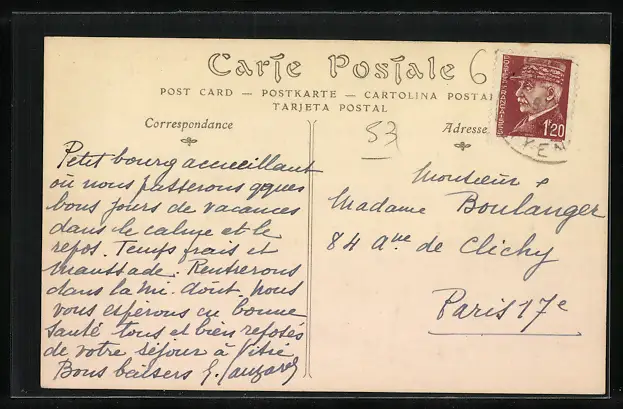 Carte Postale
6
POST CARD — POSTKARTE — CARTOLINA POSTAL
TARJETA POSTAL
Correspondance
Adresse
53
1f20
KEN
Petit bourg accueillant
où nous passerons qques
bons jours de vacances
dans le calme et le
repos. Temps frais et
maussade. Rentrerons
dans la mi-août. Nous
vous espérons en bonne
santé tous et bien reposés
de votre séjour à Vitré
Bons baisers
Monsieur &
Madame Boulanger
84 Ave de Clichy
Paris 17e